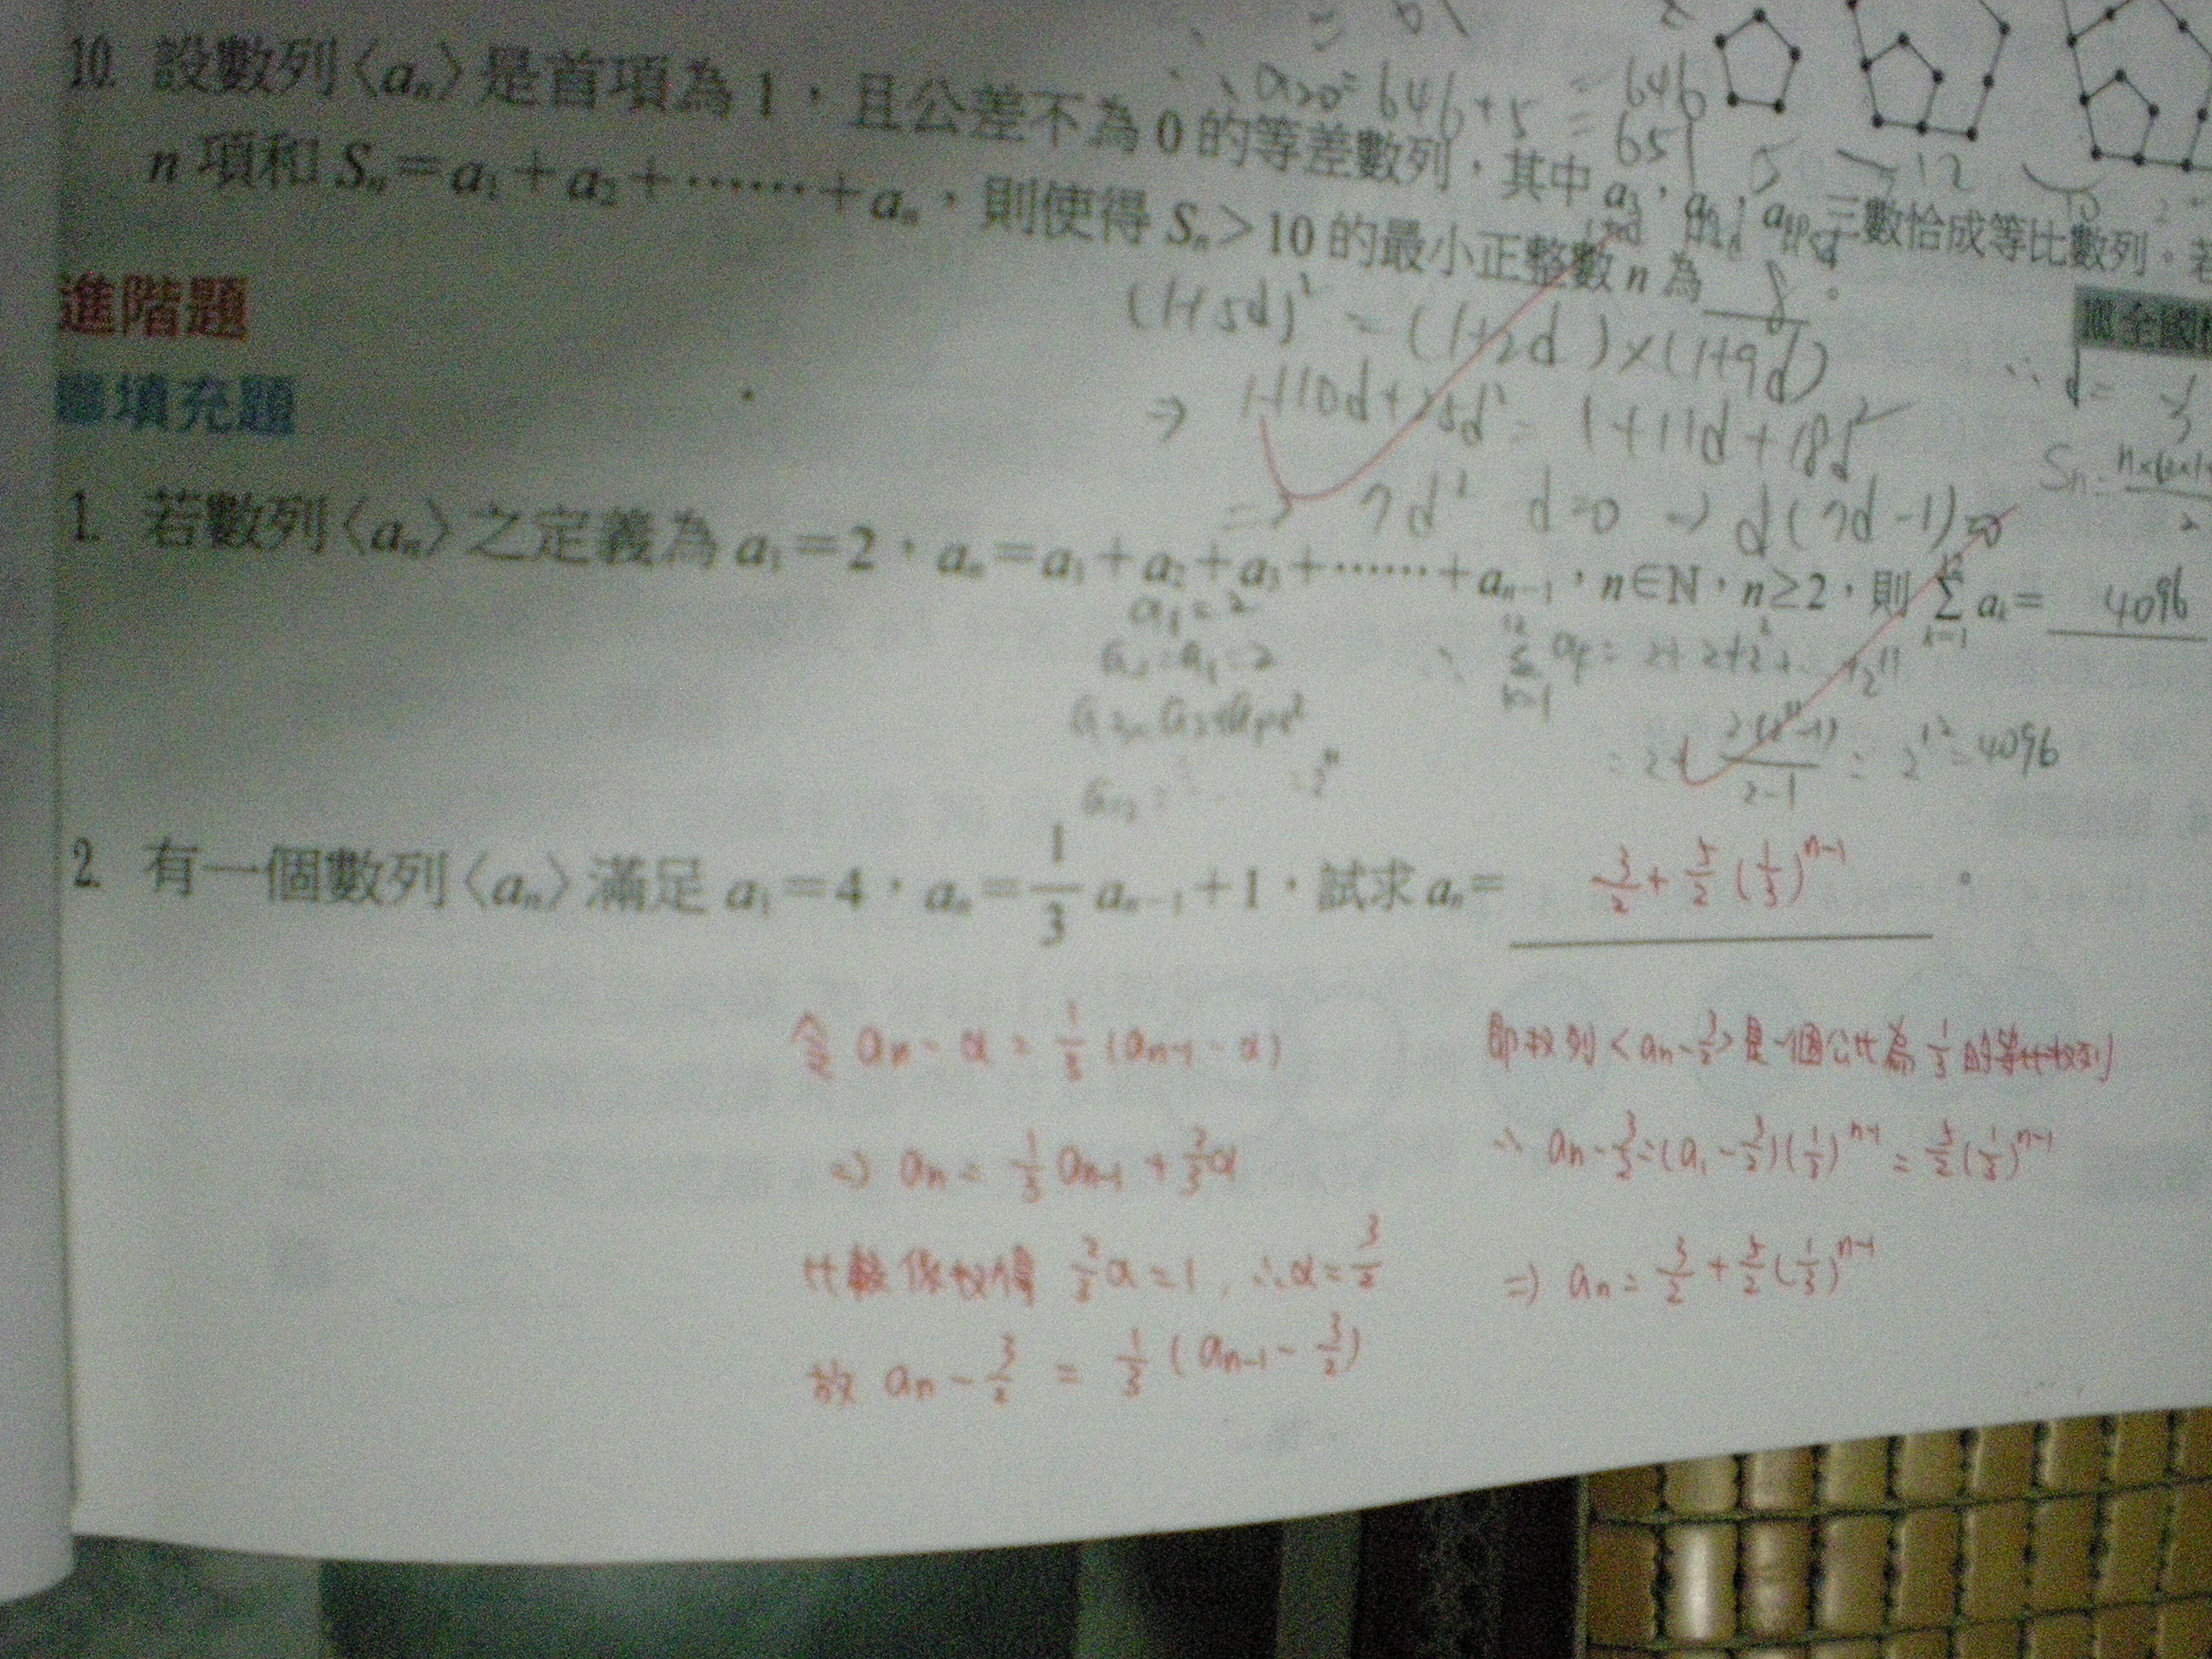 = 61
∴ a₂₀ = 646+5 = 646
= 651
5 → 12
10. 設數列⟨aₙ⟩是首項為 1，且公差不為 0 的等差數列，其中 a₃，a₆，a₁₀ 三數恰成等比數列。若
n 項和 Sₙ＝a₁＋a₂＋⋯⋯＋aₙ，則使得 Sₙ＞10 的最小正整數 n 為 8 。
全國
(1+5d)² = (1+2d)×(1+9d)
∴ d =
⇒ 1+10d+25d² = 1+11d+18d²
Sₙ =
⇒ 7d² d=0 → d(7d-1)=0
進階題
填充題
1. 若數列⟨aₙ⟩之定義為 a₁＝2，aₙ＝a₁＋a₂＋a₃＋⋯⋯＋aₙ₋₁，n∈N，n≥2，則 Σ(k=1→12) aₖ＝ 4096
a₁=2
a₂=a₁=2
a₃=a₂+a₁=2²
∴ Σ(k=1→12) aₖ = 2+2+2²+...+2¹¹
= 2+ 2(2¹¹-1)/(2-1) = 2¹² = 4096
2. 有一個數列⟨aₙ⟩滿足 a₁＝4，aₙ＝1/3 aₙ₋₁＋1，試求 aₙ＝ 3/2 + 5/2 (1/3)ⁿ⁻¹ 。
令 aₙ - α = 1/3 (aₙ₋₁ - α)
⇒ aₙ = 1/3 aₙ₋₁ + 2/3 α
比較係數得 2/3 α = 1，∴ α = 3/2
故 aₙ - 3/2 = 1/3 (aₙ₋₁ - 3/2)
即数列<aₙ - 3/2>是一個公比為 1/3 的等比数列
∴ aₙ - 3/2 = (a₁ - 3/2)(1/3)ⁿ⁻¹ = 5/2 (1/3)ⁿ⁻¹
⇒ aₙ = 3/2 + 5/2 (1/3)ⁿ⁻¹